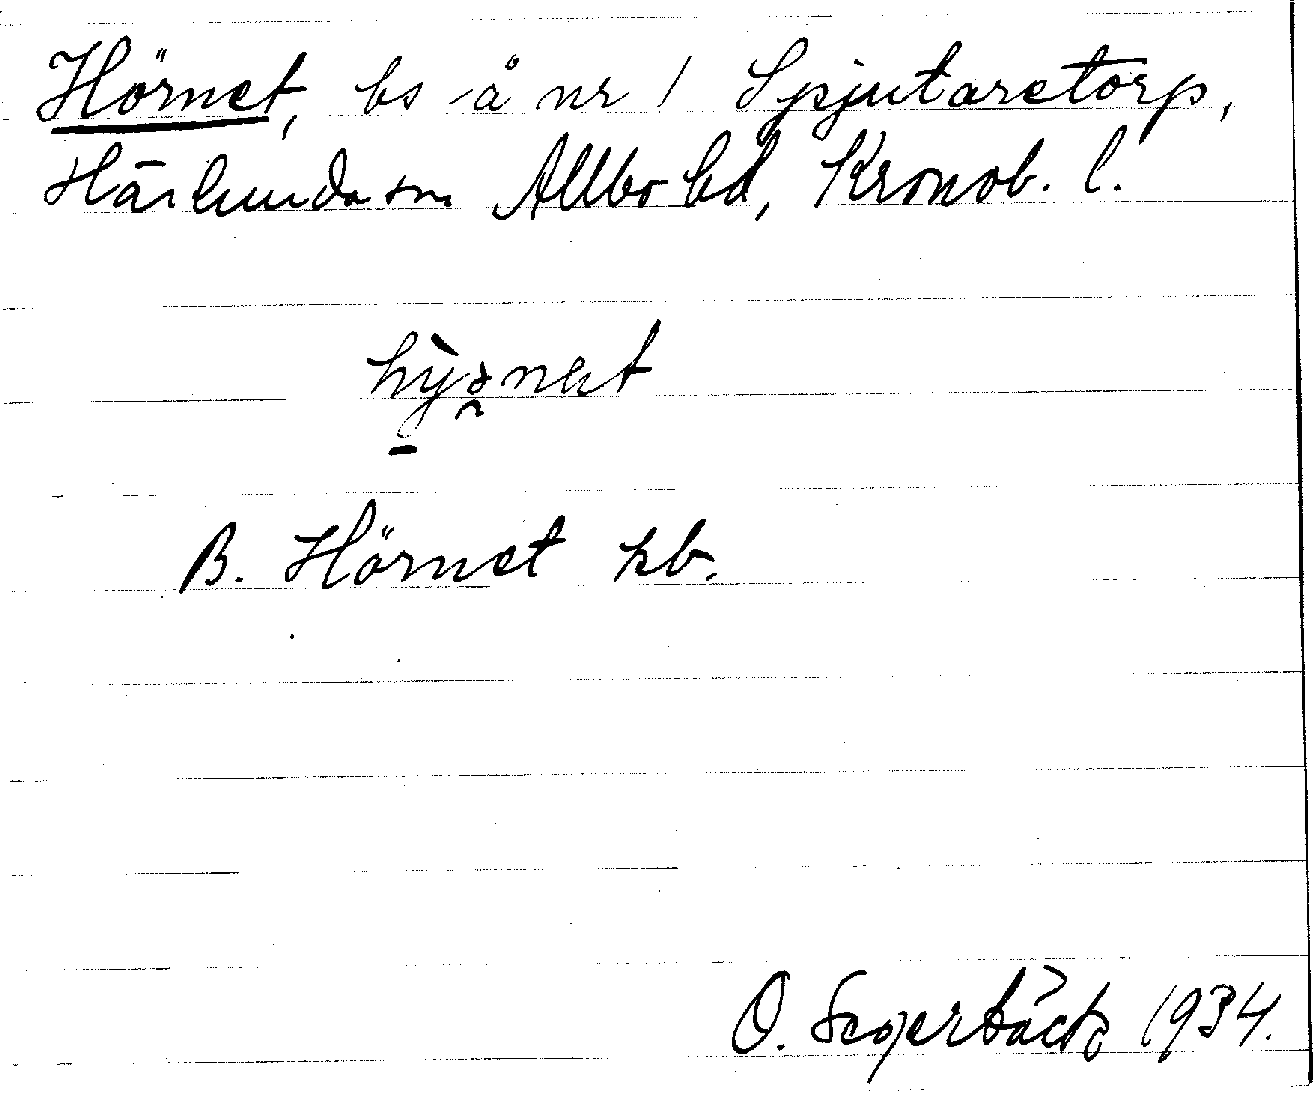 Hörnet, bs å nr 1 Spjutaretorp,
Härlunda sn Allbo hd, Kronob. l.
B. Hörnet kb.
O. Segerbäck 1934.